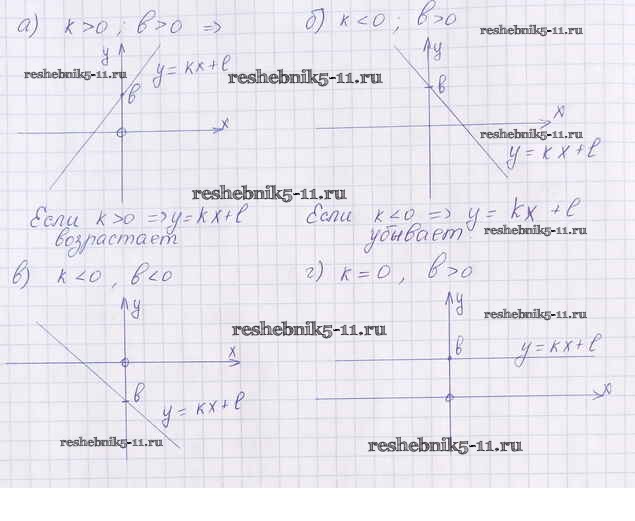 а) k>0 ; b>0 =>
y
reshebnik5-11.ru
y = kx+b
b
x
reshebnik5-11.ru
б) k<0 ; b>0
reshebnik5-11.ru
y
b
x
reshebnik5-11.ru
y = kx+b
reshebnik5-11.ru
Если k>0 => y=kx+b
возрастает
Если k<0 => y = kx +b
убывает
reshebnik5-11.ru
в) k<0, b<0
y
reshebnik5-11.ru
x
b
y = kx+b
reshebnik5-11.ru
г) k=0, b>0
y
reshebnik5-11.ru
b
y = kx+b
x
reshebnik5-11.ru